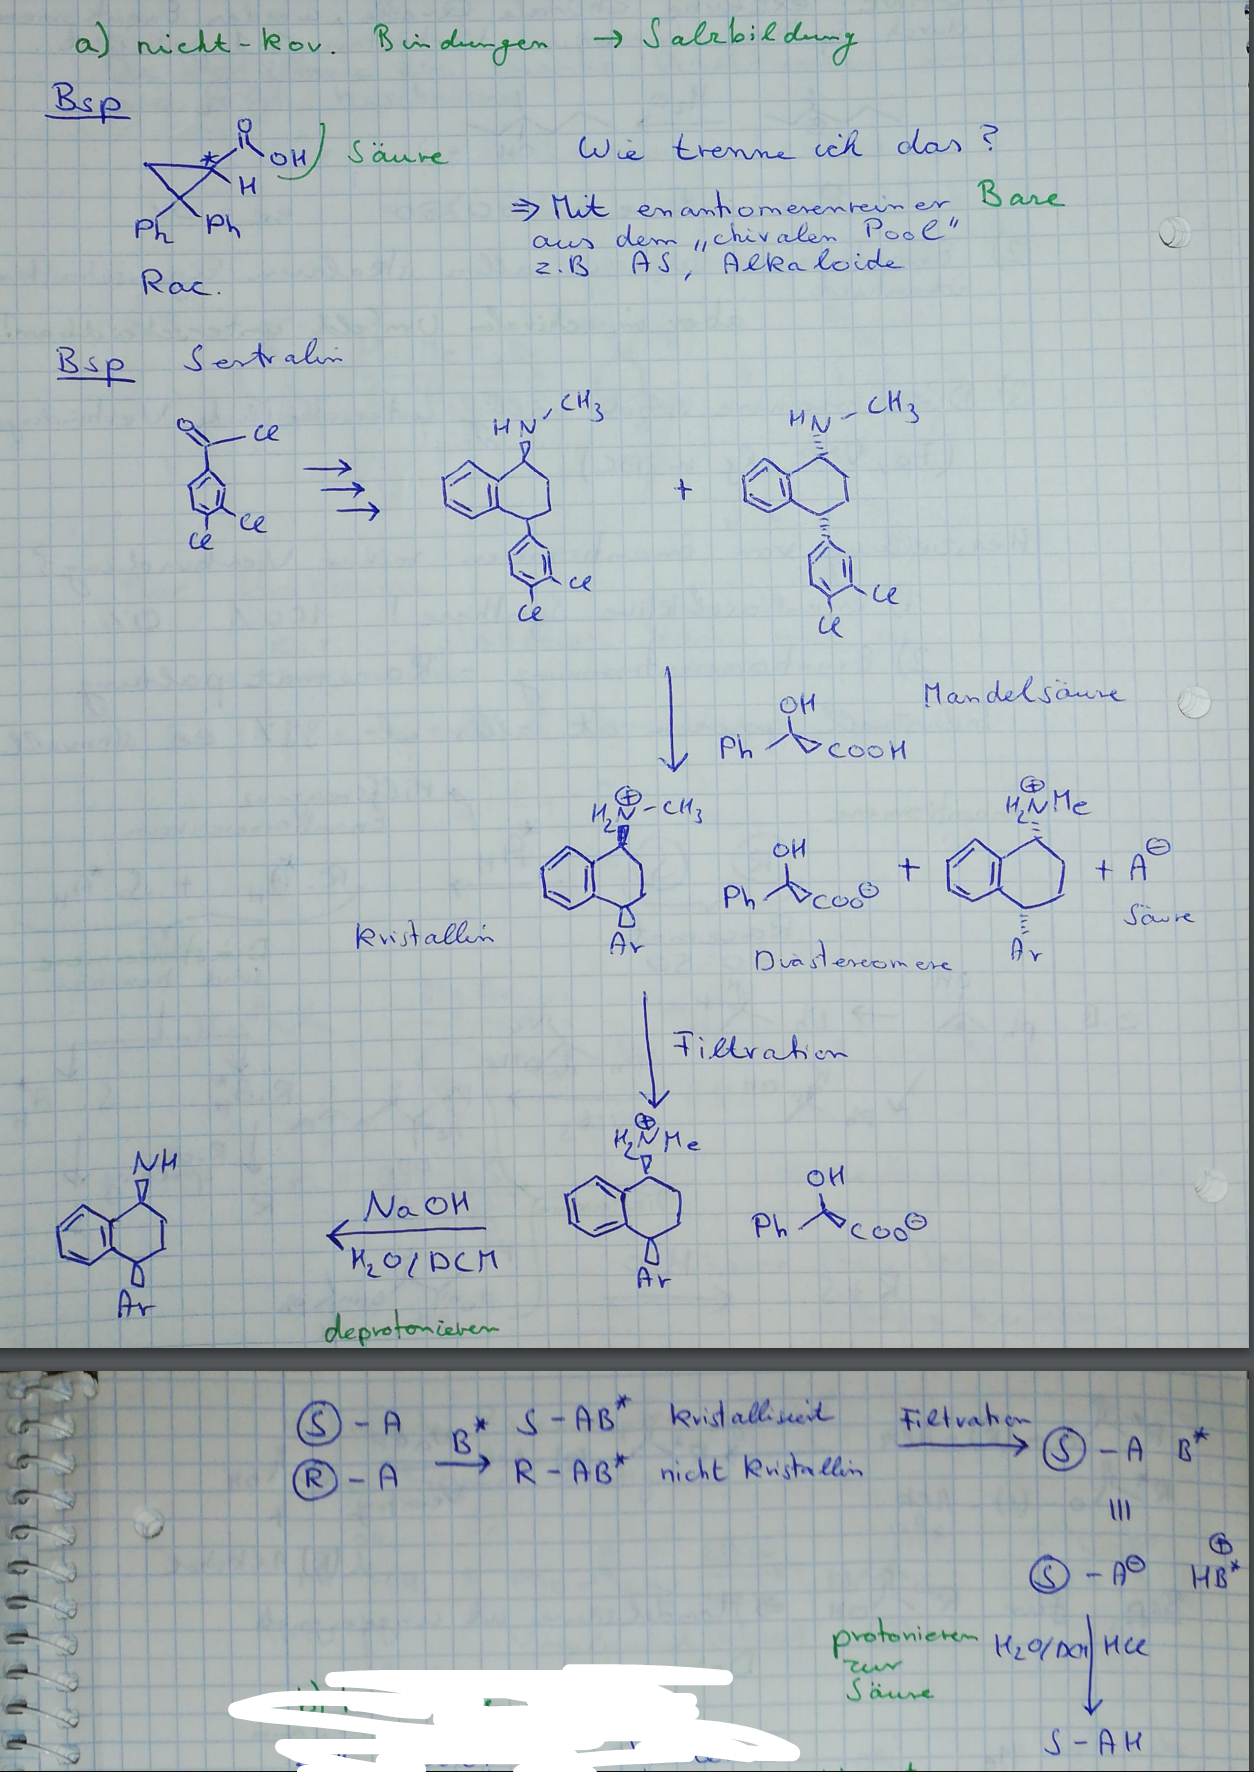 a) nicht-kov. Bindungen → Salzbildung
Bsp
O
* OH Säure
H
Ph Ph
Rac.
Wie trenne ich das?
⇒ Mit enantiomerenreiner Base
aus dem „chiralen Pool"
z.B AS, Alkaloide
Bsp Sertralin
O Cl
Cl
Cl
HN-CH3
Cl
Cl
+
HN-CH3
Cl
Cl
OH
Ph COOH
Mandelsäure
⊕
H2N-CH3
Ar
kristallin
OH
Ph COO⊖
Diastereomere
+
⊕
H2NMe
Ar
+ A⊖
Säure
Filtration
⊕
H2NMe
Ar
OH
Ph COO⊖
NaOH
H2O/DCM
deprotonieren
NH
Ar
S-A B* S-AB* kristallisiert Filtration S-A B*
R-A → R-AB* nicht kristallin
≡
S-A⊖ HB*⊕
protonieren H2O/DCM HCl
zur
Säure
S-AH